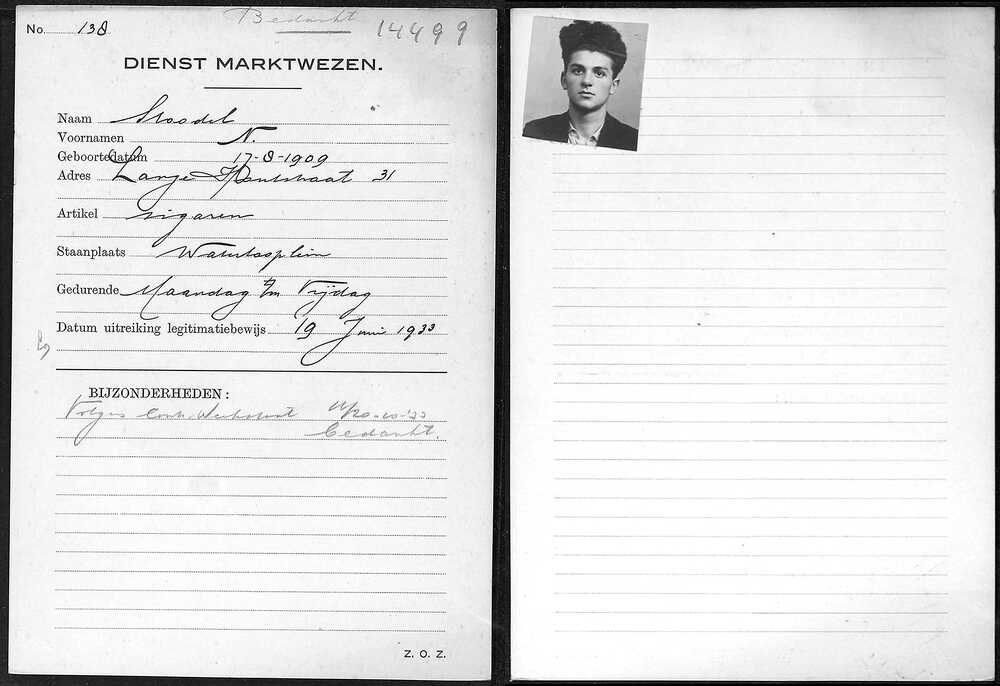 Bedankt
No. 138 14499
DIENST MARKTWEZEN.
Naam Stoodel
Voornamen N.
Geboortedatum 17-8-1909
Adres Lange Houtstraat 31
Artikel sigaren
Staanplaats Waterlooplein
Gedurende Maandag t/m Vrijdag
Datum uitreiking legitimatiebewijs 19 Juni 1933
BIJZONDERHEDEN:
Volgens
bedankt.
Z. O. Z.